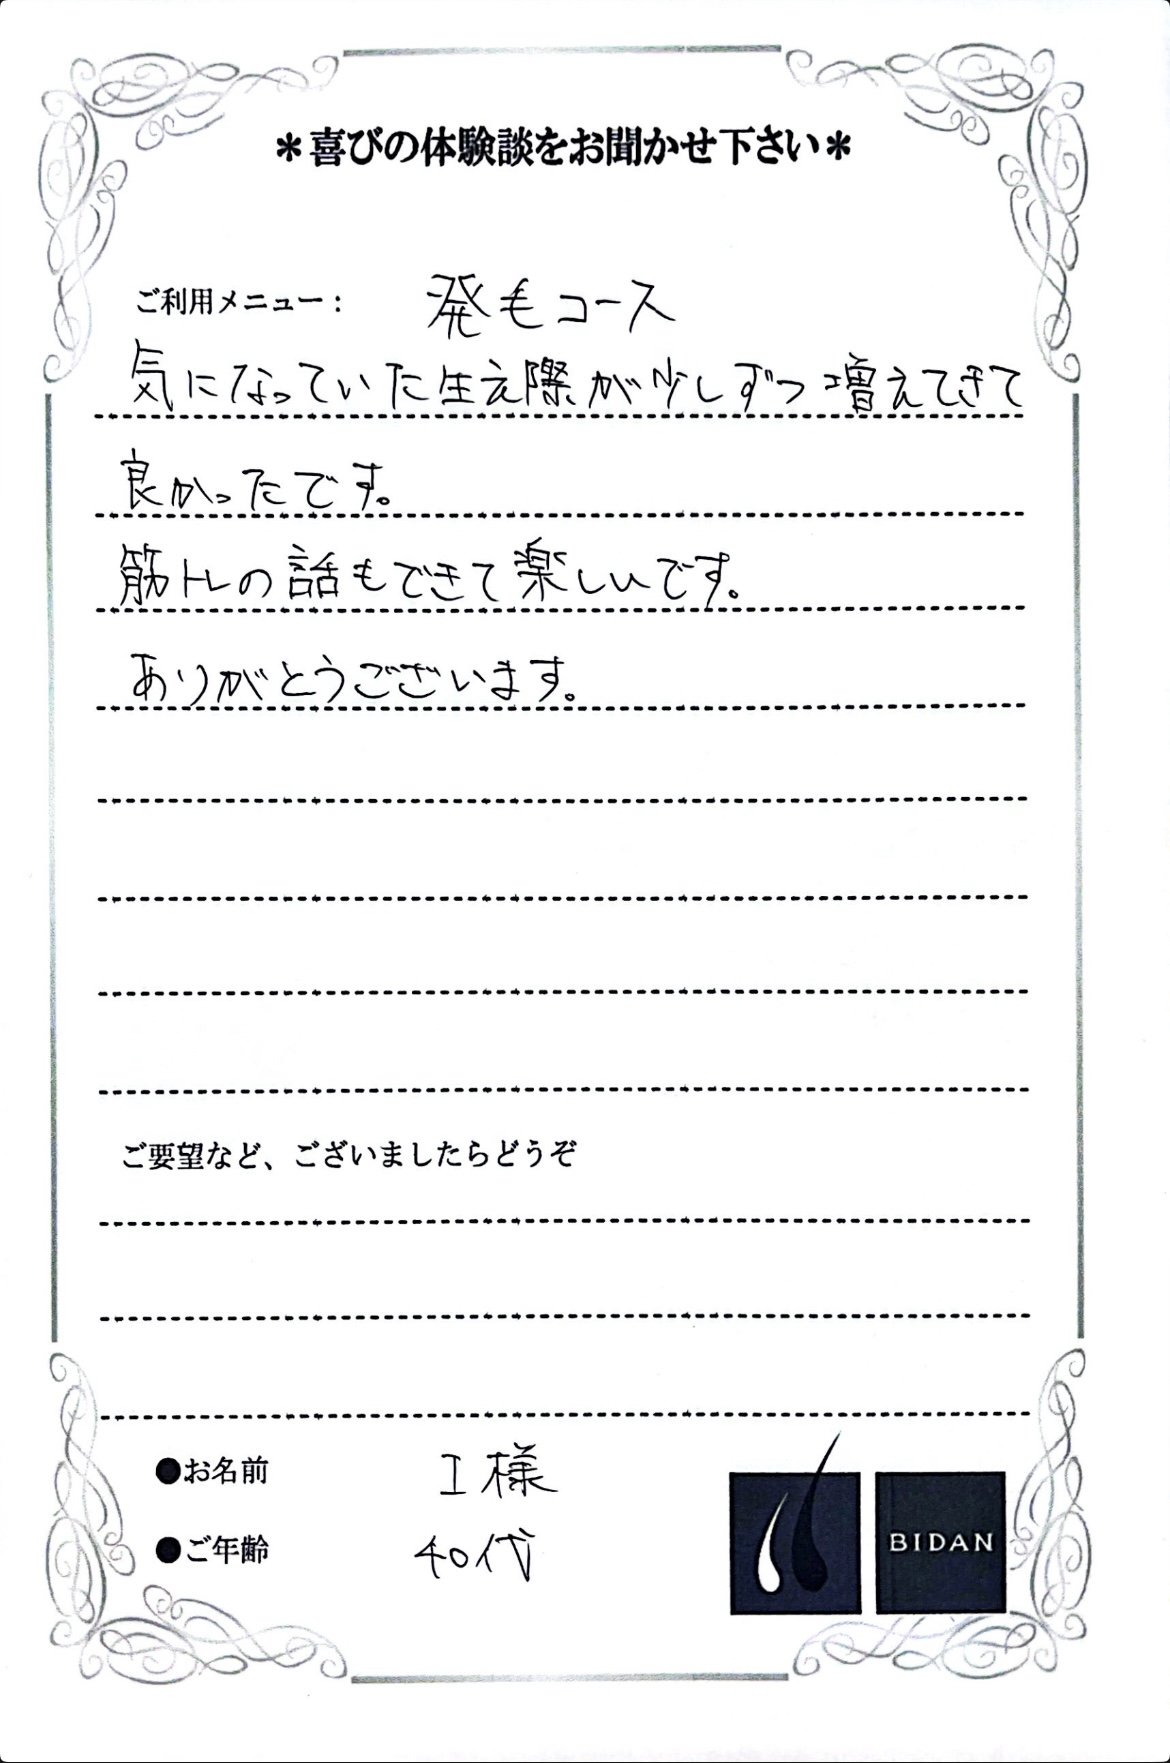 ＊喜びの体験談をお聞かせ下さい＊
ご利用メニュー： 発毛コース
気になっていた生え際が少しずつ増えてきて
良かったです。
筋トレの話もできて楽しいです。
ありがとうございます。
ご要望など、ございましたらどうぞ
●お名前 I様
●ご年齢 40代
BIDAN